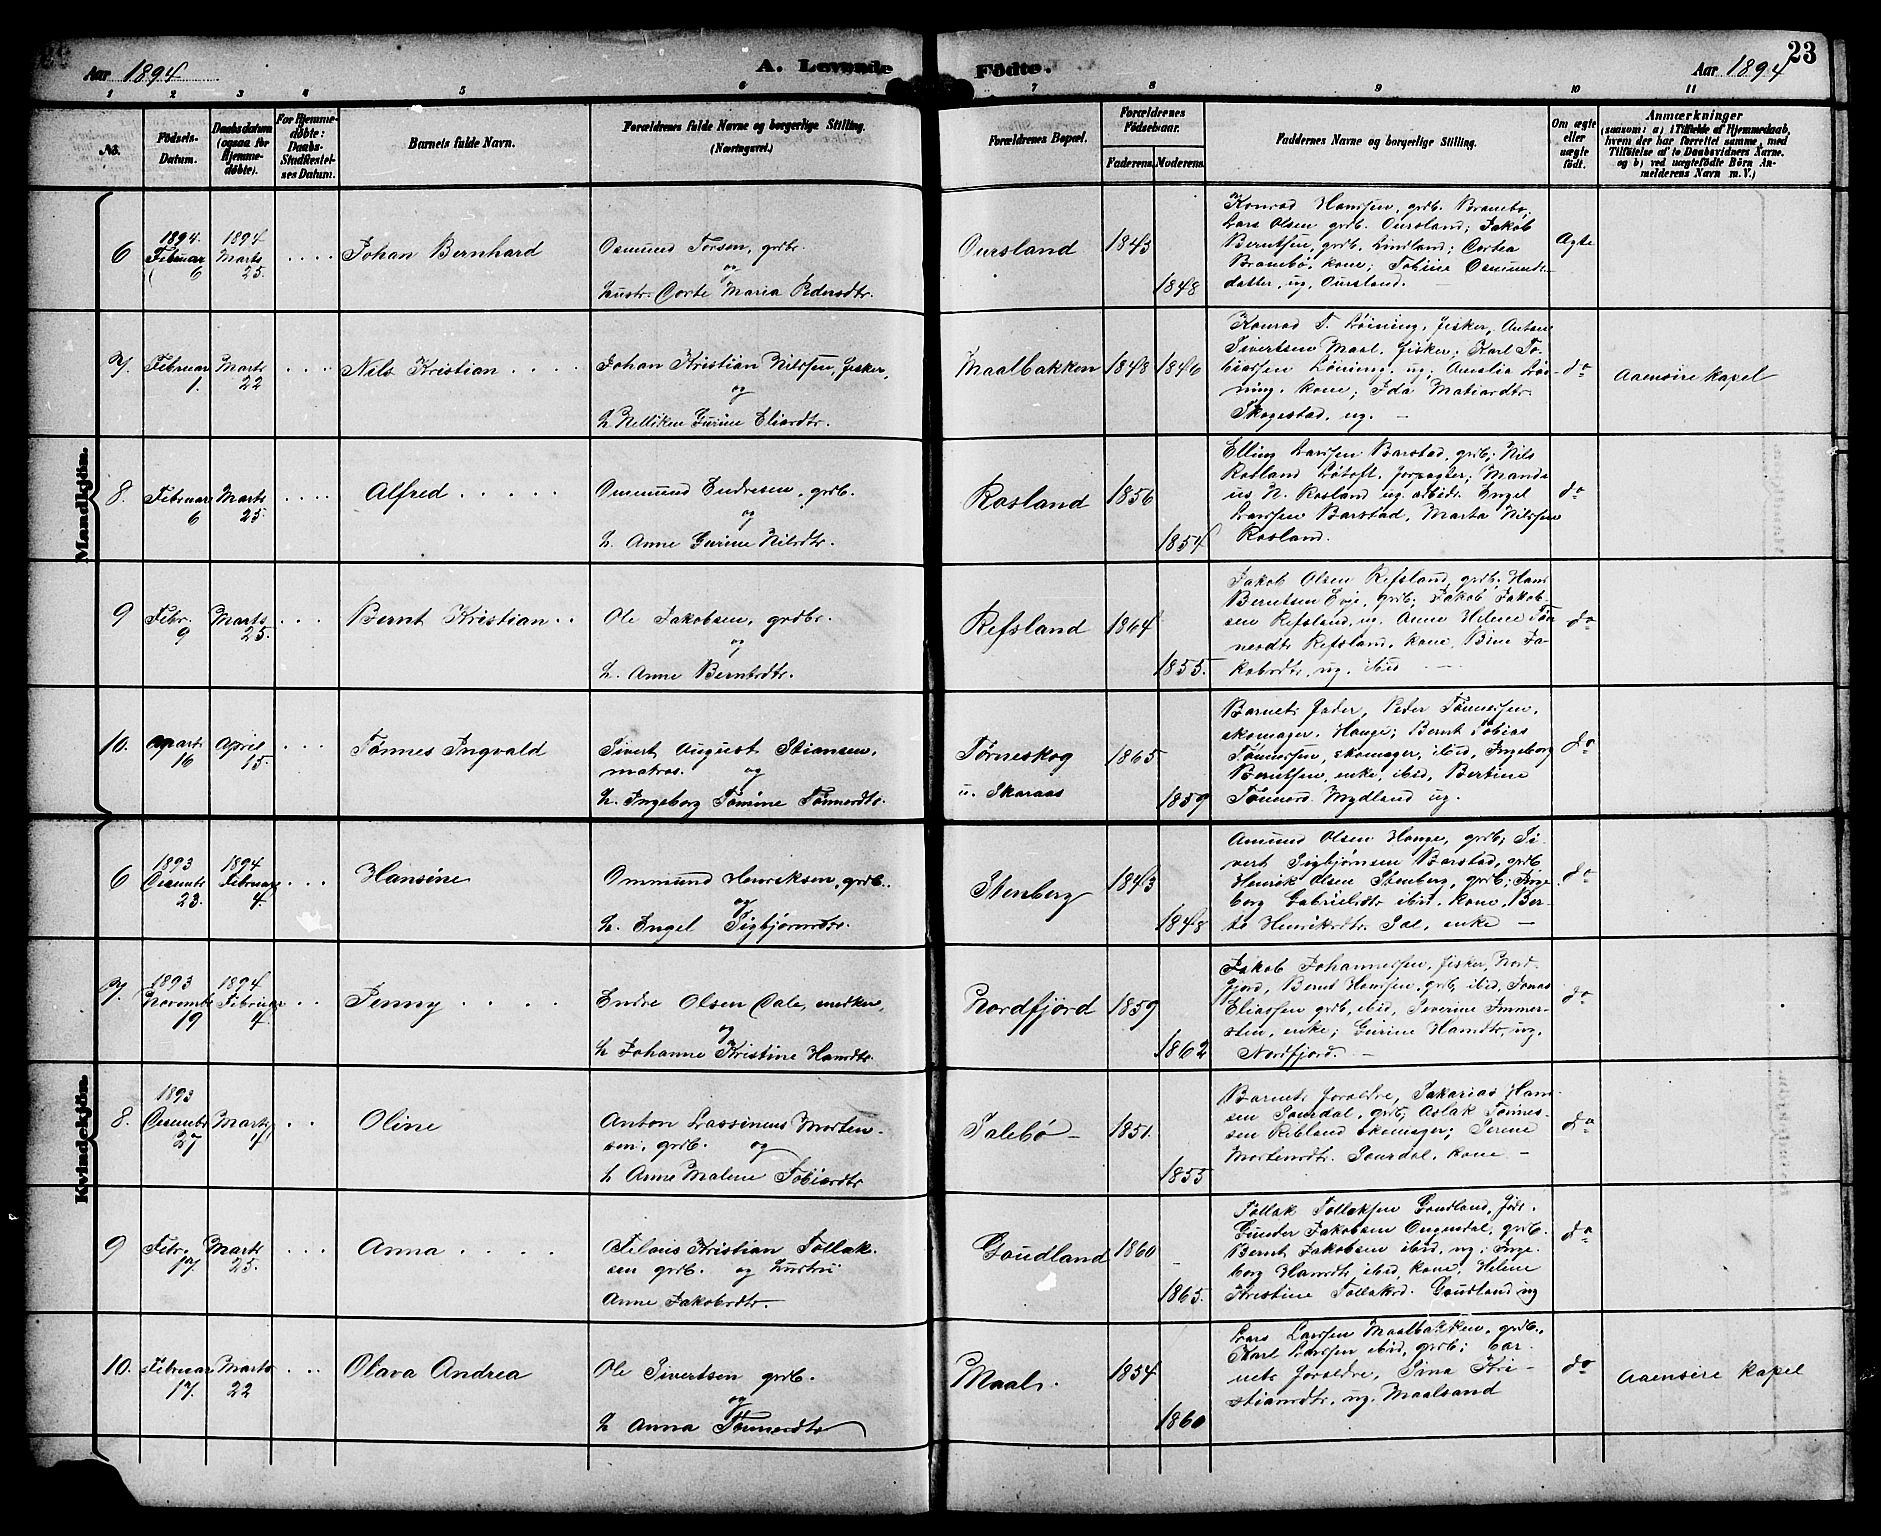 23
Aar 1894
A. Levende Fødte.
Aar 1894
1 2 3 4 5 6 7 8 9 10 11
No.
Fødsels-Datum.
Daabsdatum (ogsaa for Hjemmedøbte).
For Hjemmedøbte: Daabs-Stadfæstelses Datum.
Barnets fulde Navn.
Forældrenes fulde Navne og borgerlige Stilling.
(Næringsvei.)
Forældrenes Bopæl.
Forældrenes Fødselsaar.
Faderens. Moderens.
Faddernes Navne og borgerlige Stilling.
Om ægte eller uægte født.
Anmærkninger
(saasom: a) i Tilfælde af Hjemmedaab, hvem der har forrettet samme, med Tilføielse af to Daabsvidners Navne, og b) ved uægtefødte Børn Anmelderens Navn m. V.)
Mandkjøn.
6 1894 Februar 6 1894 Marts 25. Johan Bernhard
Osmund Torsen, grdbr.
og
hustr. Corte Maria Pedersdtr.
Oursland 1843 1848
Konrad Hanssen, grdb. Brambø,
Lars Olsen grdb. Oursland; Jakob
Berntsen, grdb. Lindland; Cortea
Brambø, kone; Tobine Osmunds-
datter, ug. Oursland.
Ægte
7. Februar 1. Marts 22 Nils Kristian
Johan Kristian Nilssen, fisker,
og
h. Nelliken Gurine Eliasdtr.
Maalbakken 1848 1846
Konrad T. Løining, fisker, Antone
Sivertsen Maal, fisker; Karl To-
biassen Løining, ug; Amalia Løi-
ning, kone; Ida Matiasdtr.
Skogestad, ug.
do
Aaensire Kapel
8. Februar 6 Marts 25 Alfred
Osmund Endresen, grdb.
og
h. Anne Gurine Nilsdtr.
Rosland 1856 1854
Elling Larssen Barstad, grdb; Nils
Rosland Løtoft, forpagter; Manda-
us N. Rosland ug. arbeidr. Engel
Larssen Barstad, Marta Nilssen
Rosland.
do
9 Febr. 9 Marts 25. Bernt Kristian
Ole Jakobsen, grdbr.
og
h. Anne Berntsdtr.
Refsland 1864 1855.
Jakob Olsen Refsland, grdb. Hans
Berntsen Eve, grdb; Jakob Jakob-
sen Refsland, ug. Anne Helene Tøn-
nesdtr Refsland, kone, Bine Ja-
kobsdtr, ug. ibid
do
10. Marts 16 April 15. Tønnes Ingvald
Sivert August Stiansen,
matros. og
h. Ingeborg Tomine Tønnesdtr.
Tørneskog
u. Skaraas
1865 1859
Barnets fader, Peder Tønnessen,
skomager, Hauge; Bernt Tobias
Tønnessen, skomager, ibid, Ingeborg
Berntsen, enke, ibid, Bertine
Tønnesd. Mydland ug.
do
Kvindekjøn.
6 1893 Decembr 23. 1894 Februar 4. Hansine
Ommund Henriksen, grdb.
og
h. Engel Sigbjørnsdtr.
Stenberg 1843 1848
Amund Olsen Hauge, grdb; Si-
vert Sigbjørnsen Barstad, grdb
Henrik Olsen Stenberg, grdb; Inge-
borg Gabrielsdtr ibid, kone, Ber-
te Henriksdtr. Sæl, enke
do
7. 1893 Novembr 19 1894 Februar 4. Jenny
Endre Olsen Dale, snedker,
og
h Johanne Kristine Hansdtr.
Nordfjord 1859 1862
Jakob Johannessen, fisker, Nord-
fjord, Bernt Hanssen, grdb, ibid, Jonas
Eliassen grdb, ibid, Severine Immer-
sten, enke; Gurine Hansdtr, ug,
Nordfjord.
do
8. 1893 Decembr 27 Marts Oline
Anton Lassineus Morten-
sen, grdb. og
h Anne Malene Tobiasdtr
Salebø 1851. 1855
Barnets foreldre, Sakarias Han-
sen Sourdal, grdb, Aslak Tønnes-
sen Rebland skomager; Serene
Mortensdtr. Sourdal, kone
do
9 Febr. 17 Marts 25. Anna
Filous Kristian Tollak-
sen grdb. og hustru
Anne Jakobsdtr.
Goudland 1860 1865.
Tollak Tollaksen Goudland, fødr.
Gunder Jakobsen Ougendal, grdb.
Bernt Jakobsen ibid, ug; Inge-
borg Hansdtr ibid, kone, Helene
Kristine Tollaksd. Goudland ug
do
10. Februar 17. Marts 22 Olava Andrea
Ole Sivertsen grdb.
og
h Anna Tønnesdtr
Maal. 1854 1860
Lars Larssen Maalbakken, grdb.,
Karl Larssen ibid, grdb; bar-
nets foreldre, Sina Kri-
stiansdtr, ug. Maalsand
do
Aaensire Kapel